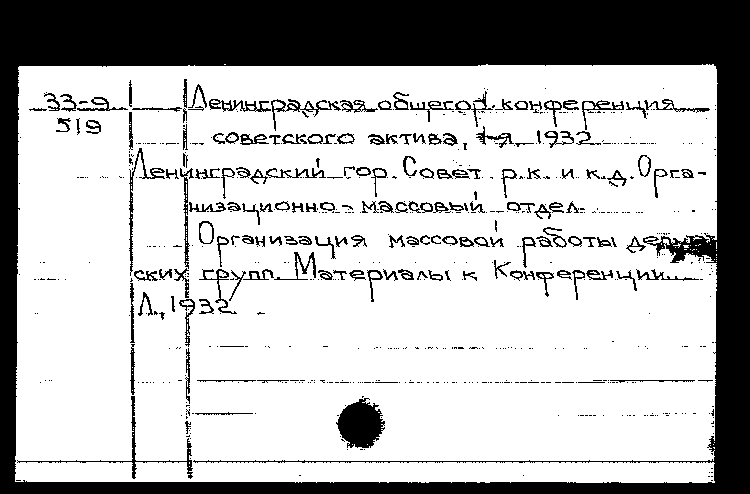 33-9
519
Ленинградская общегор. конференция
советского актива, 1-я 1932
Ленинградский гор. Совет р.к. и к.д. Орга-
низационно-массовый отдел.
Организация массовой работы
ских групп. Материалы к Конференции...
Л., 1932.